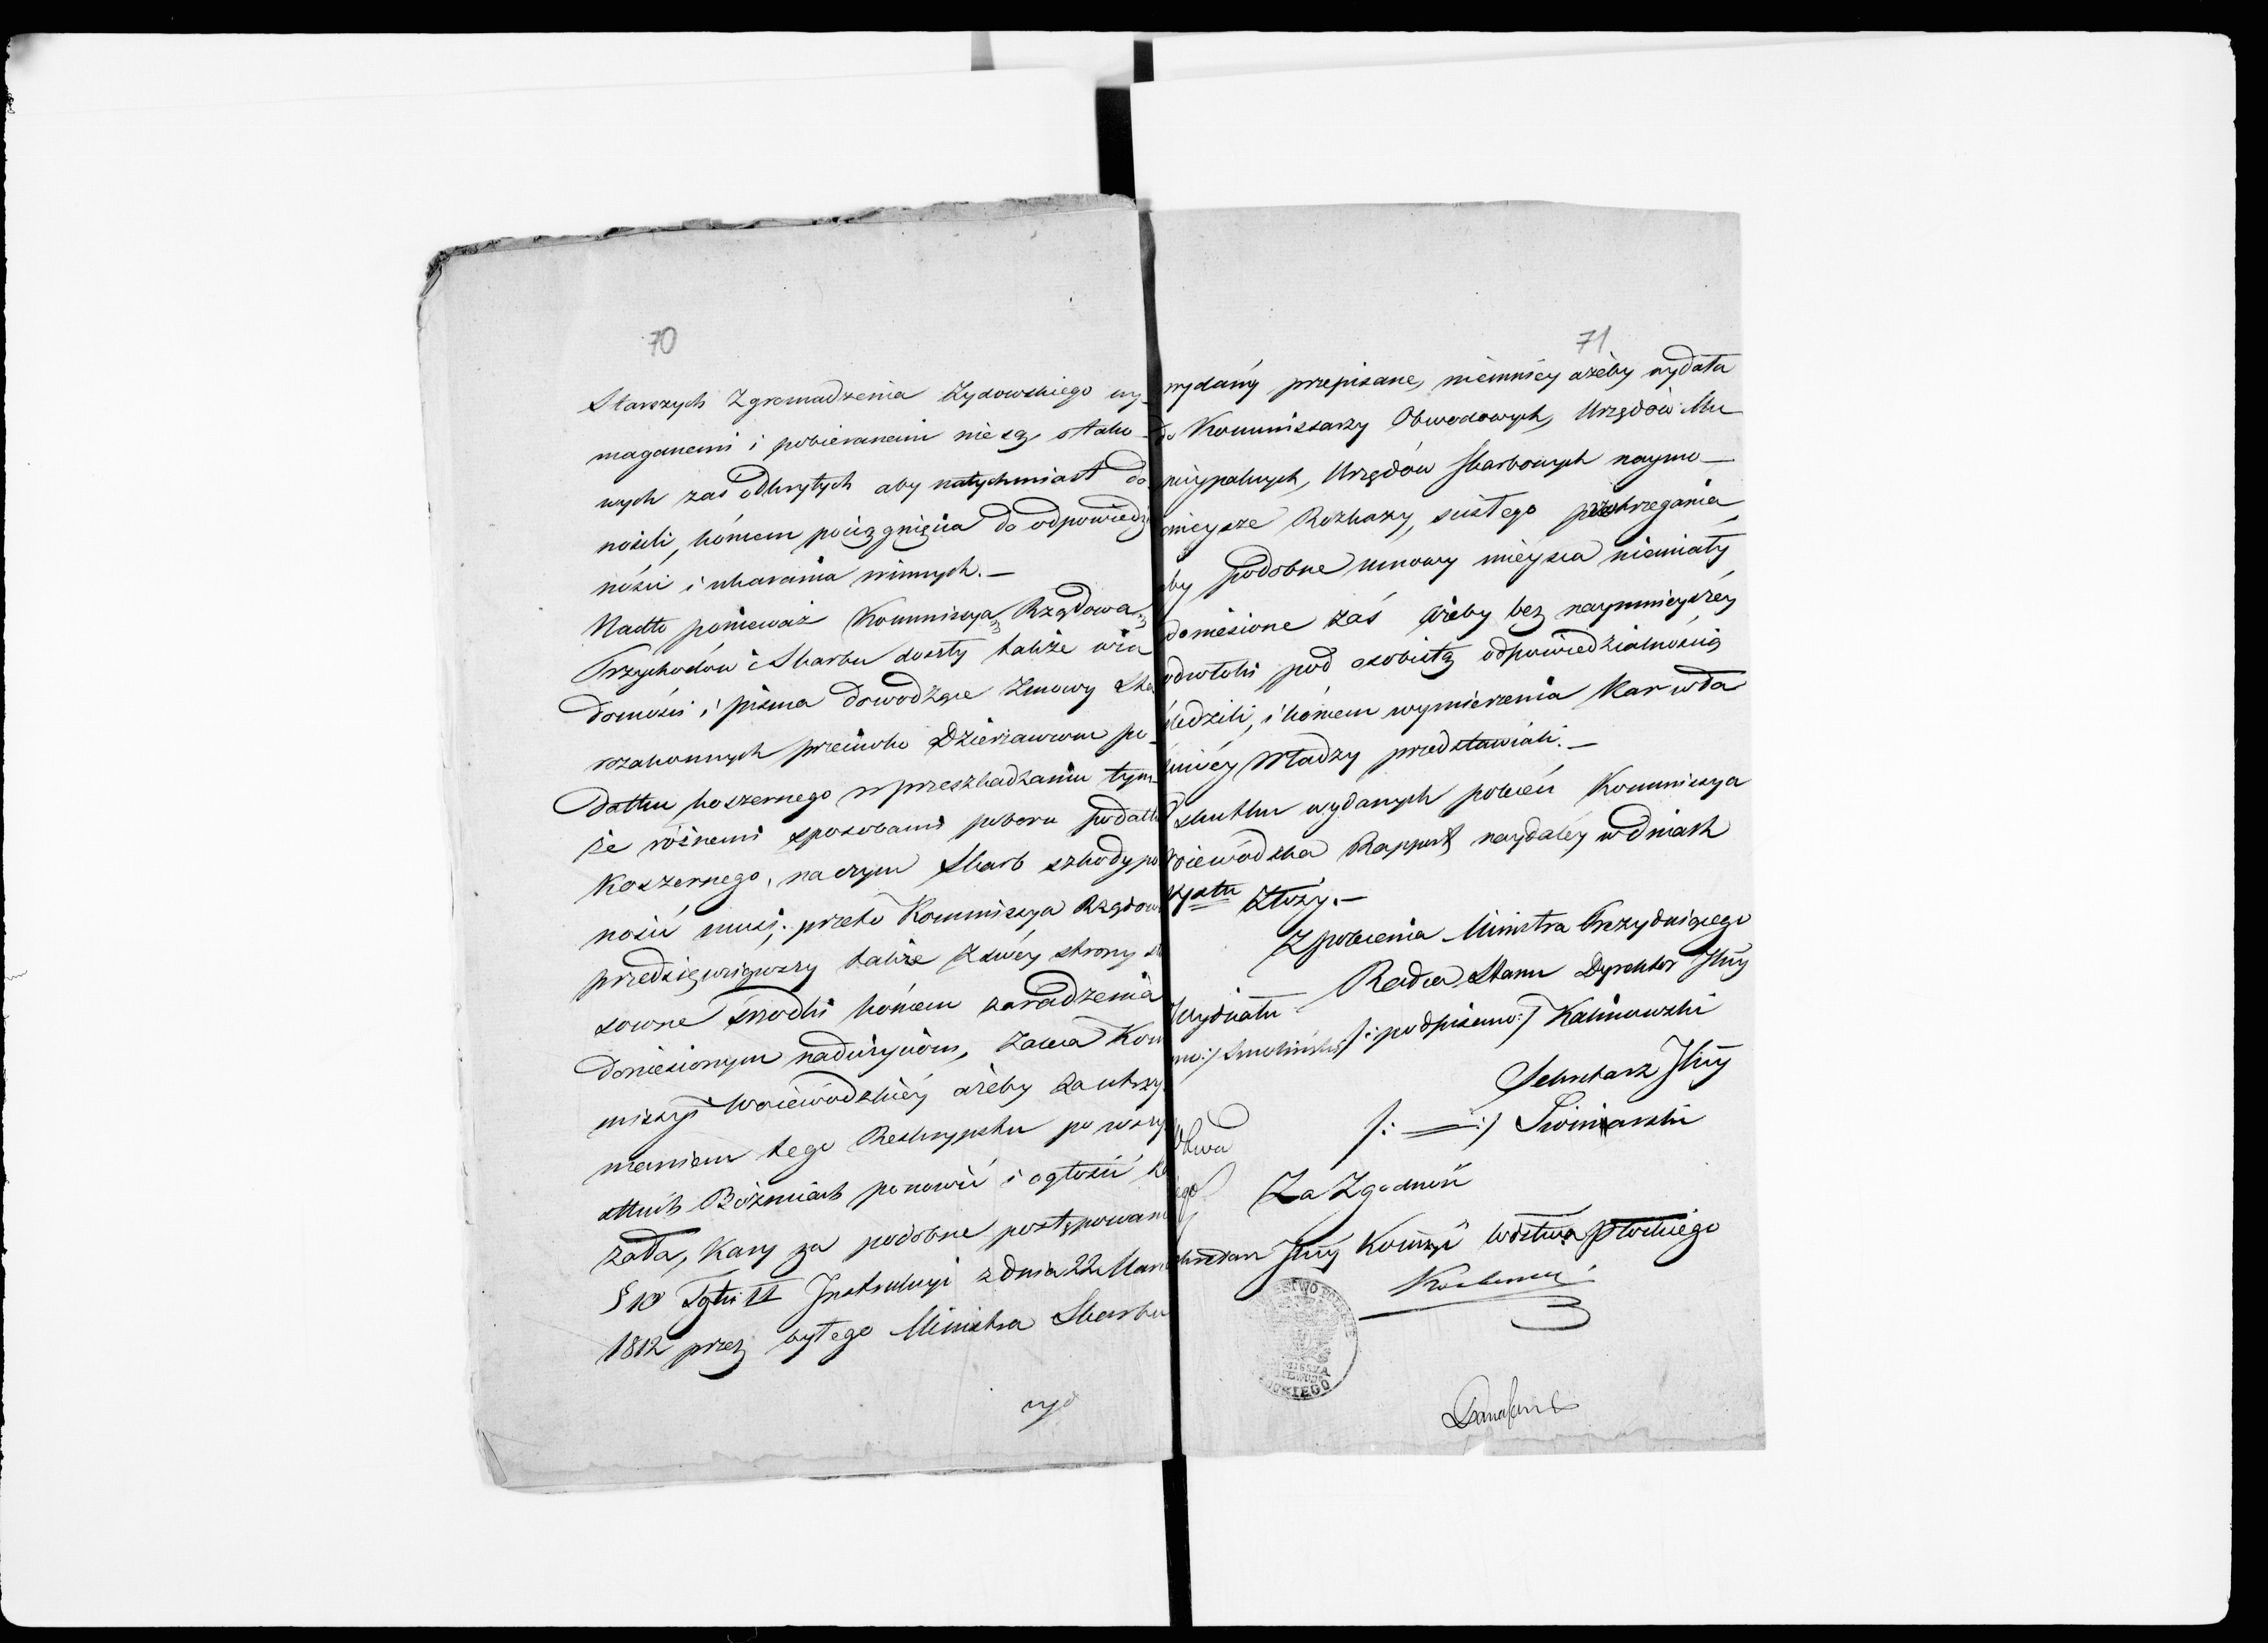 70
Starszych Zgromadzenia Żydowskiego wy-
maganemi i pobieranemi nie są, o tako-
wych zaś odkrytych aby natychmiast do-
nosili, końcem pociągnięcia do odpowiedzi
ności i ukarania winnych.—
Nadto ponieważ Kommissya Rządowa
Przychodów i Skarbu doszły także wia
domości i pisma dowodzące zmowy Sta
rozakonnych przeciwko Dzierżawcom po-
datku koszernego w przeszkadzaniu tym-
że różnemi sposobami poboru podatku
Koszernego, na czym Skarb szkody po
nosić musi; przeto Kommissya Rządow
przedsięwziąwszy także z swéy strony st
sowne środki końcem zaradzenia
doniesionym nadużyciom, zaleca Kom
missyi Woiewódzkiéy ażeby za utrzy-
maniem tego Reskryptu po wszy
stkich Bóżnicach ponowić i ogłosić ka
zała, kary za podobne postępowan
§ 10 Tytu II Instrukcyi z dnia 22 Mar
1812 przez byłego Ministra Skarbu
wyd
71
wydaną przepisane, niemniéy ażeby wydała
do Kommissarzy Obwodowych, Urzędów Mu
nicypalnych, Urzędów Skarbowych naymo—
cnieysze Rozkazy, scisłego przestrzegania
by podobne umowy mieysca niemiały
doniesione zaś ażeby bez naymnieyszéy
odwłoki pod osobistą odpowiedzialnością
śledzili, i końcem wymierzenia kar wła
ściwéy Władzy przedstawiali.—
skutku wydanych poleceń Kommissya
Woiewódzka Rapport naydaléy w dniach
złoży.—
Z polecenia Ministra Prezyduiącego
Radca Stanu Dyrektor Jlny
/:podpisano:/ Kalinowski
Sekretarz Jlny
/: — :/ Świniarski
Za Zgodność
Jlny Kommsyi Wdztwa Płockiego